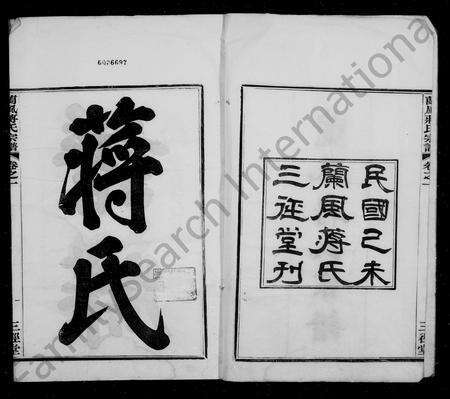 6026697
蔣氏
蘭風蔣氏宗譜 卷之一
三徑堂
民國己未
蘭風蔣氏
三徑堂刊
蘭風蔣氏宗譜 卷之一
三徑堂
FamilySearch International